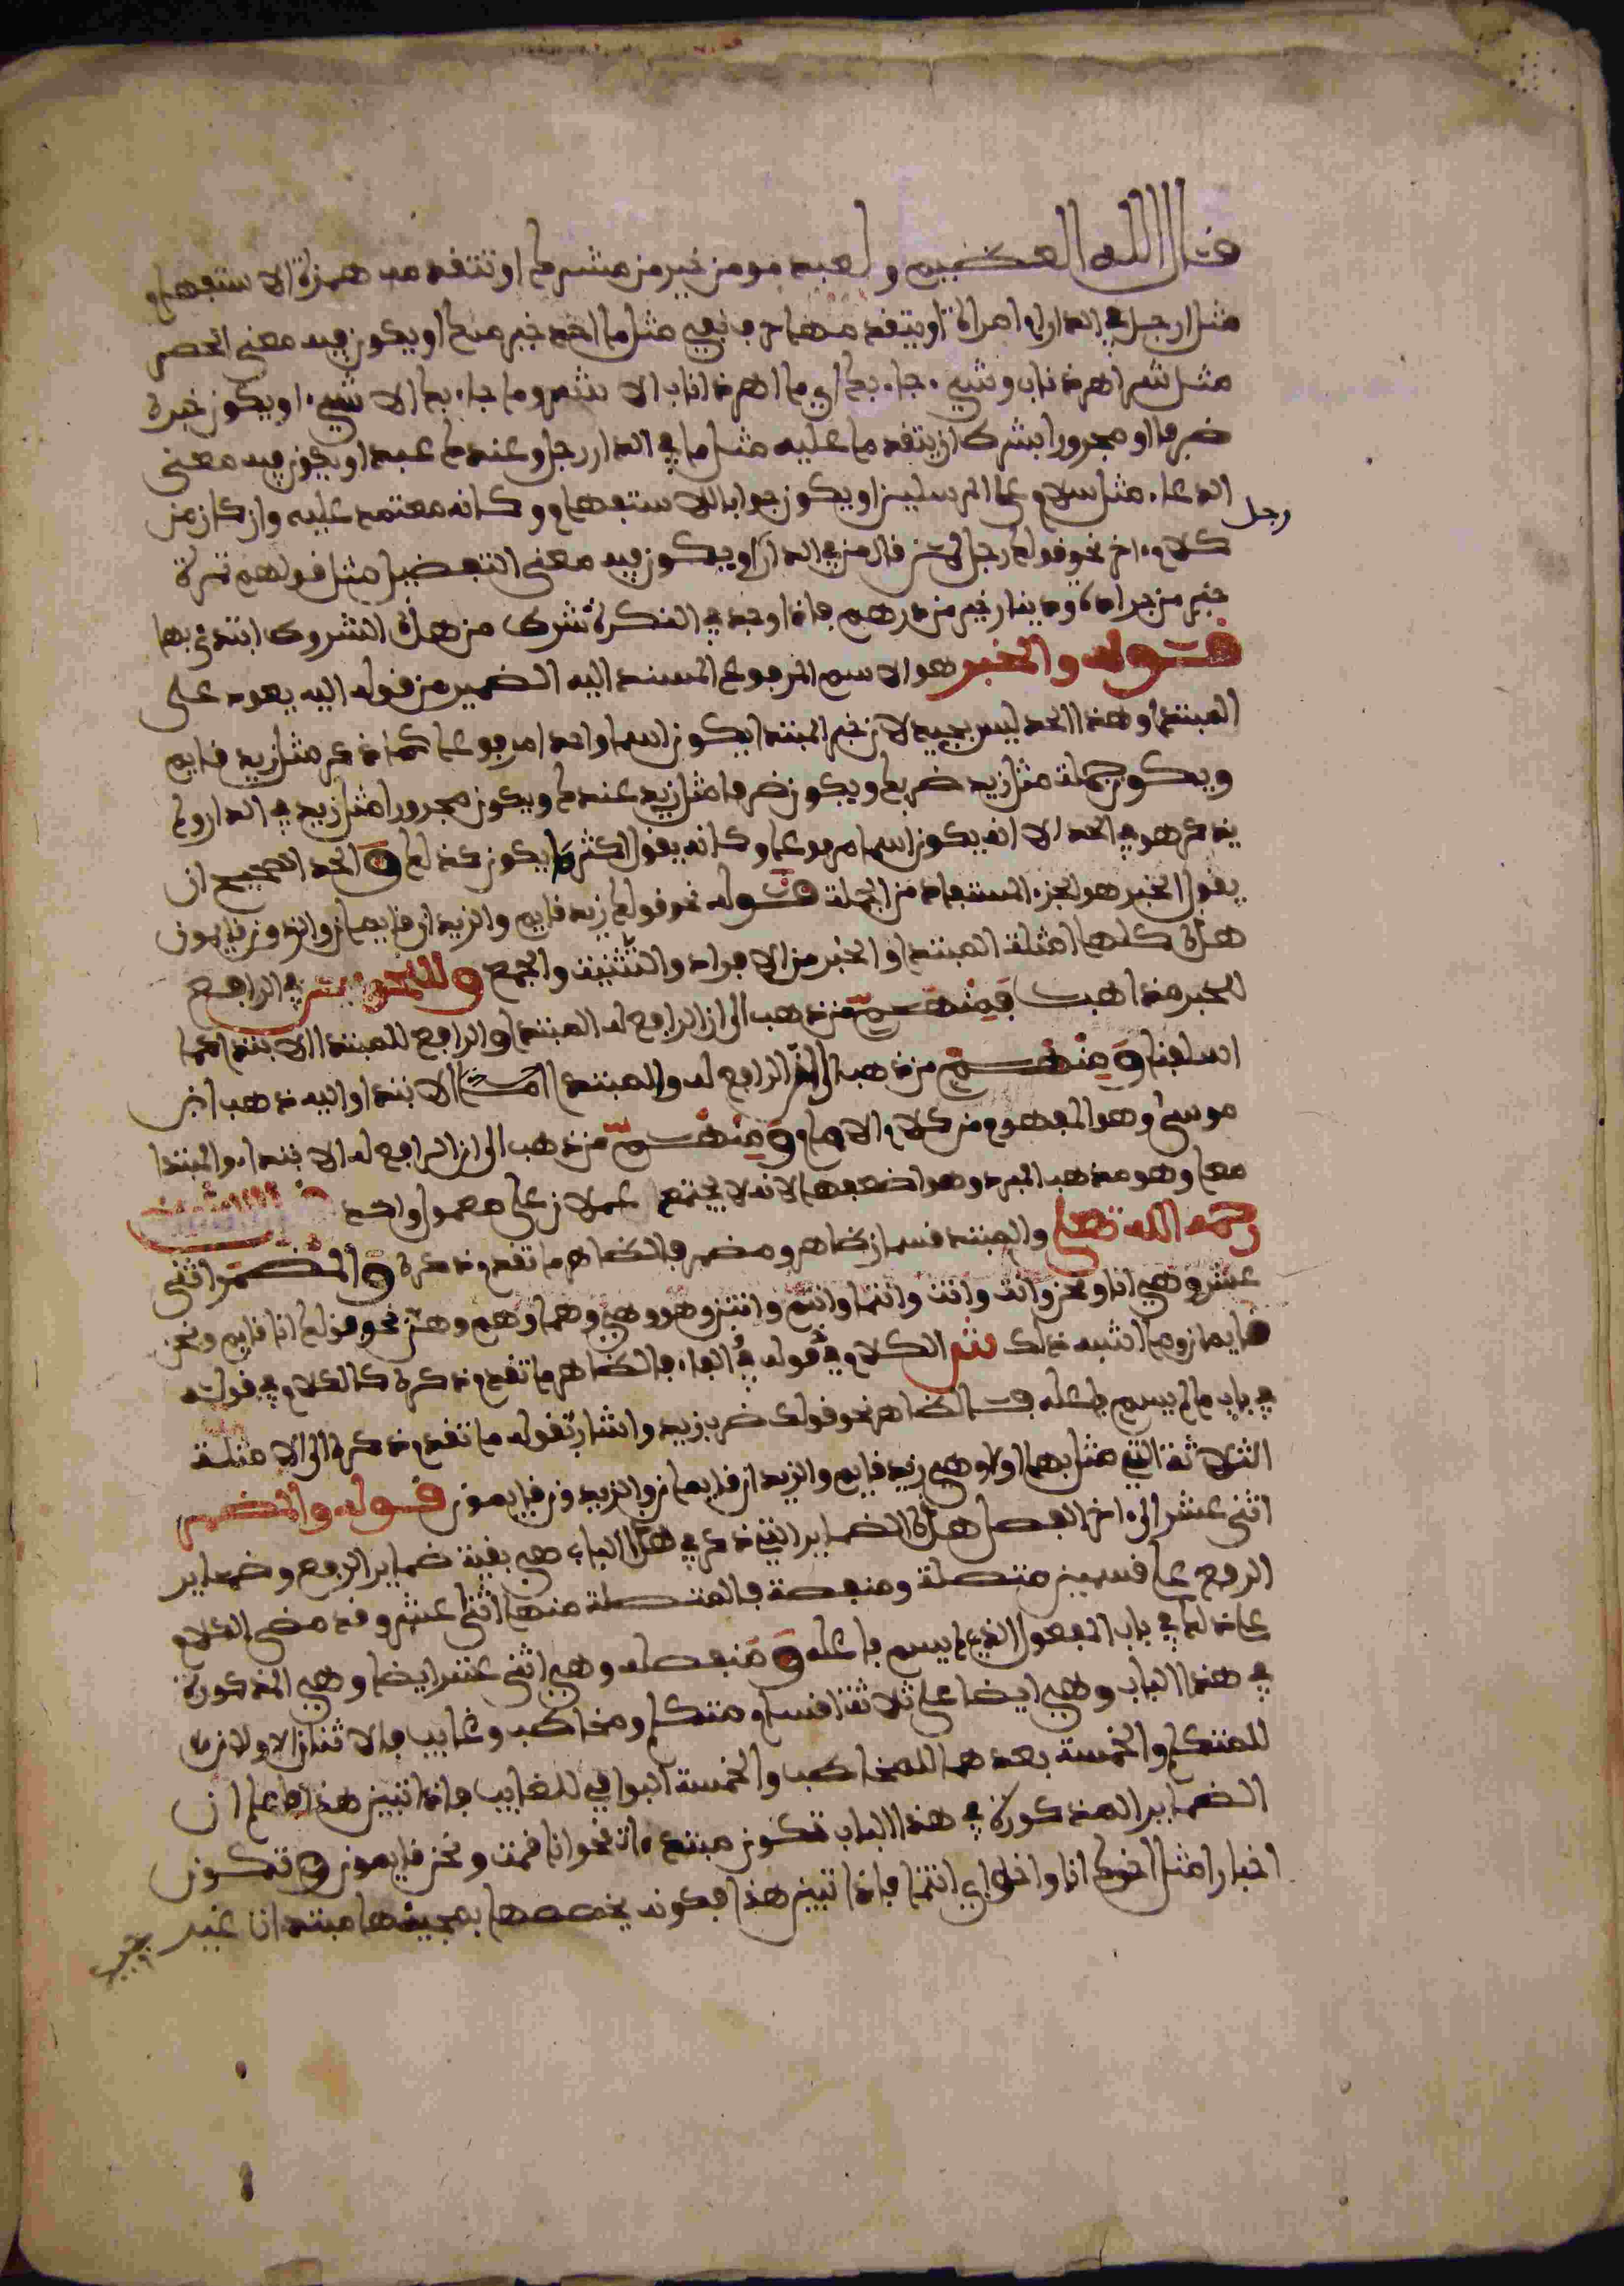 قال الله العظيم ولعبد مومن خير من مشرك او تتقدمه همزة الاستفهام
مثل ارجل في الدار ام امراة او يتقدمها حرف نفي مثل ما احد خير منك او يكون فيه معنى الحصر
مثل شر اهر ذا ناب وشيء جاء بك اي ما اهر ذا ناب الا شر وما جاء بك الا شيء او يكون خبره
ظرفا او مجرورا بشرط ان يتقدما عليه مثل ما في الدار رجل وعندك عبد او يكون فيه معنى
الدعاء مثل سلام على المرسلين او يكون جوابا للاستفهام وكانه معتمد عليه وان كان من
رجل
كلام اخر نحو قولك رجل لمن قال من في الدار او يكون فيه معنى التفضيل مثل قولهم تمرة
خير من جرادة ودينار خير من درهم فاذا وجد في النكرة شرط من هذه الشروط ابتدئ بها
قوله والخبر هو الاسم المرفوع المسند اليه الضمير من قوله اليه يعود على
المبتدا وهذا الحد ليس بجيد لان خبر المبتدا يكون اسما واحدا مرفوعا كما ذكر مثل زيد قايم
ويكون جملة مثل زيد ضربك ويكون ظرفا مثل زيد عندك ويكون مجرورا مثل زيد في الدار ولم
يذكر هو في الحد الا انه يكون اسما مرفوعا وكانه يقول اكثر ما يكون كذلك والحد الصحيح ان
يقول الخبر هو الجزء المستفاد من الجملة قوله نحو قولك زيد قايم والزيدان قايمان والزيدون قايمون
هذه كلها امثلة المبتدا والخبر من الافراد والتثنية والجمع وللنحويين في الرافع
للخبر مذاهب فمنهم من ذهب الى ان الرافع له المبتدا والرافع للمبتدا الابتدا كما
اسلفنا ومنهم من ذهب الى ان الرافع له وللمبتدا الابتدا واليه ذهب ابو
موسى وهو المفهوم من كلام الامام ومنهم من ذهب الى ان الرافع له الابتداء والمبتدا
معا وهو مذهب المبرد وهو اضعفها لانه لا يجتمع عملان على معمول واحد قال الشيخ
رحمه الله تعلى والمبتدا قسمان ظاهر ومضمر فالظاهر ما تقدم ذكره والمضمر اثنى
عشر وهي انا ونحن وانت وانت وانتما وانتم وانتن وهو وهي وهما وهم وهن نحو قولك انا قايم ونحن
قايمان وما اشبه ذلك شر الكلام في قوله في الفاء فالظاهر ما تقدم ذكره كالكلام في قوله
في باب ما لم يسم فاعله فالظاهر نحو قولك ضرب زيد واشار بقوله ما تقدم ذكره الى الامثلة
الثلاثة التي مثل بها اولا وهي زيد قايم والزيدان قايمان والزيدون قايمون قوله والمضمر
اثنى عشر الى اخر الفصل هذه الضماير التي ذكر في هذا الباب هي بقية ضماير الرفع وضماير
الرفع على قسمين متصلة ومنفصلة فالمتصلة منها اثنى عشر وقد مضى الكلام
على ذلك في باب المفعول الذي لم يسم فاعله ومنفصله وهي اثنى عشر ايضا وهي المذكورة
في هذا الباب وهي ايضا على ثلاثة اقسام متكلم ومخاطب وغايب فالاثنان الاولان
للمتكلم والخمسة بعدهما للمخاطب والخمسة البواقي للغايب فاذا تبين هذا فاعلم ان
الضماير المذكورة في هذا الباب تكون مبتدءات نحو انا قمت ونحن قايمون وتكون
اخبارا مثل اخوك انا واخواي انتما فاذا تبين هذا فكونه يخصصها بمجيئها مبتدا انا غير